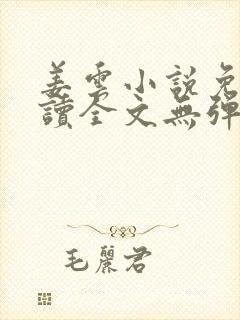 姜雲小說免
讀全文無彈
毛麗君